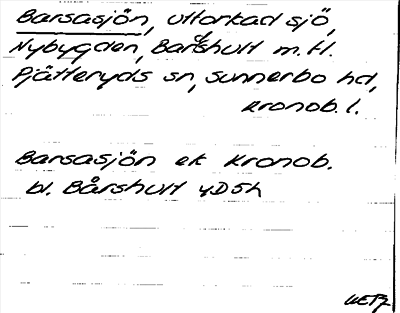 Barsasjön, uttorkad sjö,
Nybygden, Bårshult m.fl.
Pjätteryds sn, Sunnerbo hd,
Kronob. l.
Barsasjön ek Kronob.
bl. Bårshult 4D5h